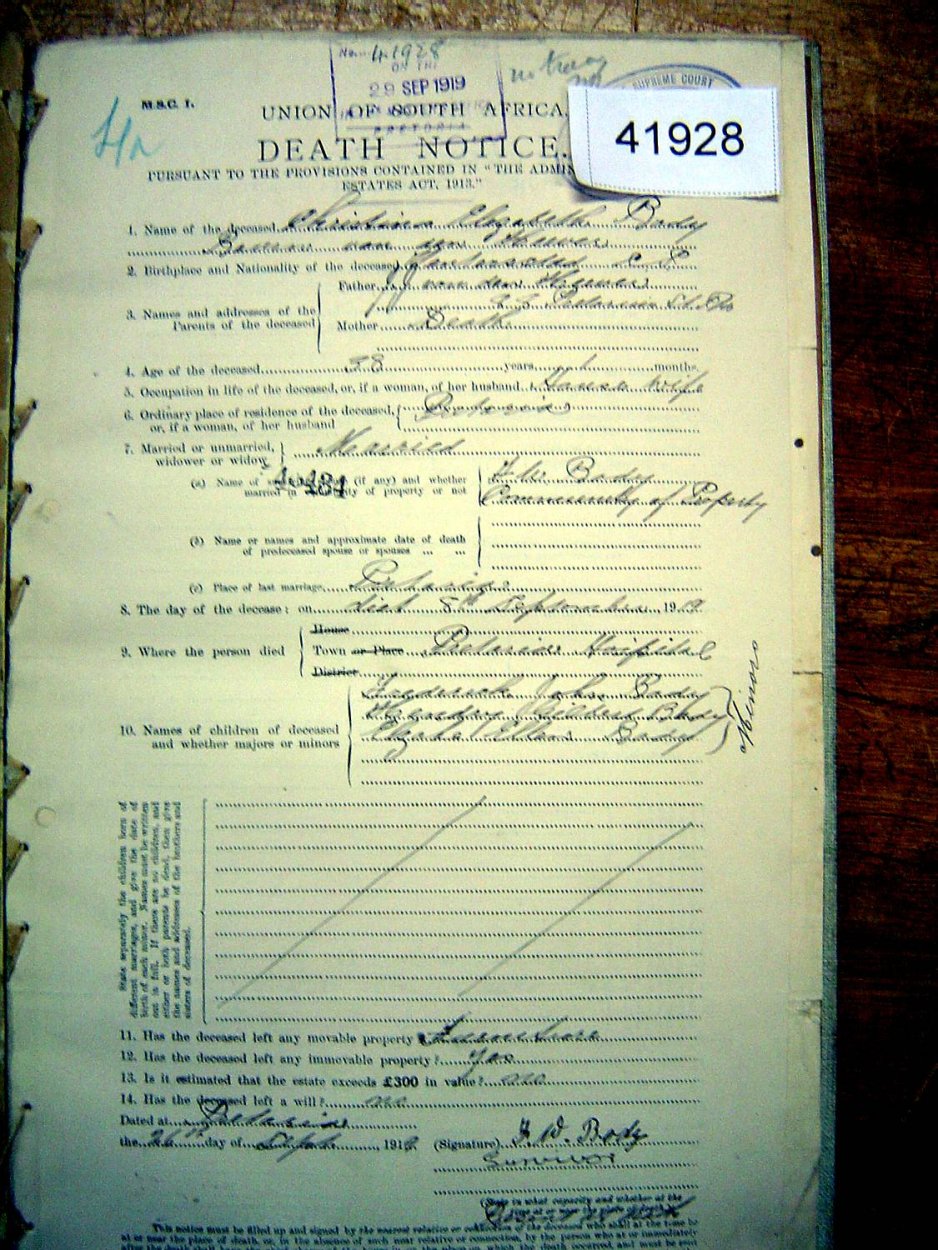 No. 41928
ON THE
29 SEP 1919
PRETORIA
SUPREME COURT
41928
M.S.C. 1.
UNION OF SOUTH AFRICA.
DEATH NOTICE.
PURSUANT TO THE PROVISIONS CONTAINED IN "THE ADMIN
ESTATES ACT, 1913."
1. Name of the deceased Christina Elizabeth Body
van den Heever
2. Birthplace and Nationality of the deceased
3. Names and addresses of the
Parents of the deceased
Father van den Heever
Pretorius St. Pta
Mother Death
4. Age of the deceased 38 years 1 months.
5. Occupation in life of the deceased, or, if a woman, of her husband House wife
6. Ordinary place of residence of the deceased,
or, if a woman, of her husband
Pretoria
7. Married or unmarried,
widower or widow
Married
(a) Name of (if any) and whether
married in of property or not
Body
Community of Property
(b) Name or names and approximate date of death
of predeceased spouse or spouses ... ...
(c) Place of last marriage Pretoria
8. The day of the decease: on died 8th September 1919
9. Where the person died
House
Town or Place Pretoria Hospital
District
10. Names of children of deceased
and whether majors or minors
Frederick John Body
Body
Ellen Body
Minors
State separately the children born of
different marriages, and give the date of
birth of each minor. Names must be written
out in full. If there are no children, and
either or both parents be dead, then give
the names and addresses of the brothers and
sisters of deceased.
11. Has the deceased left any movable property? Furniture
12. Has the deceased left any immovable property? Yes
13. Is it estimated that the estate exceeds £300 in value? no
14. Has the deceased left a will? no
Dated at Pretoria
the 26th day of Sept. 1919. (Signature) F. W. Body
Survivor
State in what capacity and whether at the
This notice must be filled up and signed by the nearest relative or connection of the deceased who shall at the time be
at or near the place of death, or, in the absence of such near relative or connection, by the person who at or immediately